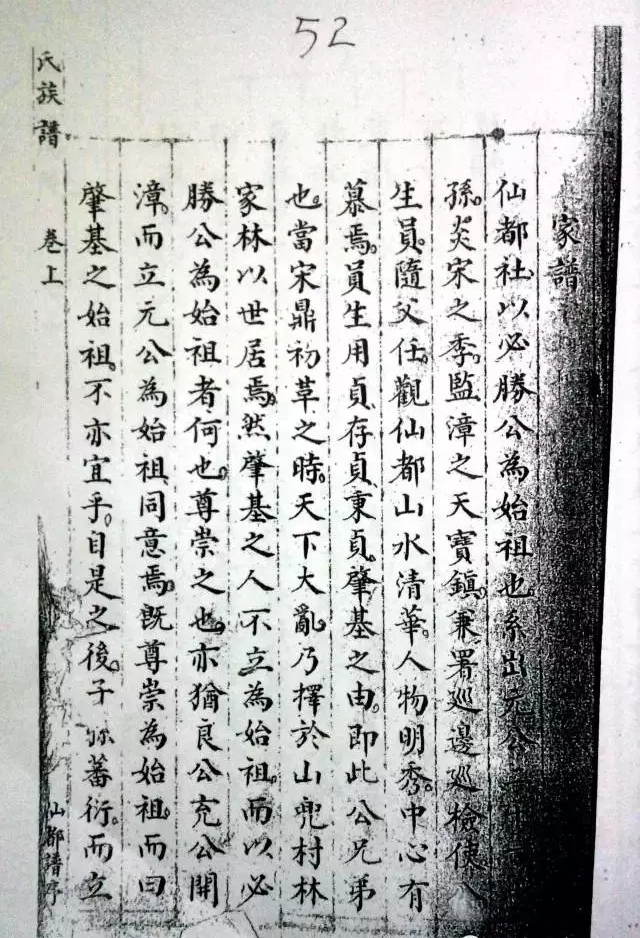 52
家譜
仙都社以必勝公為始祖也系出元公
孫炎宋之季監漳之天寶鎮兼署巡邊巡檢使
生員隨父任觀仙都山水清華人物明秀中心有
慕焉員生用貞存貞秉貞肇基之由即此公兄弟
也當宋鼎初草之時天下大亂乃擇於山兜村林
家林以世居焉然肇基之人不立為始祖而以必
勝公為始祖者何也尊崇之也亦猶良公充公開
漳而立元公為始祖同意焉既尊崇為始祖而曰
肇基之始祖不亦宜乎自是之後子孫蕃衍而立
氏族譜
卷上
仙都譜序